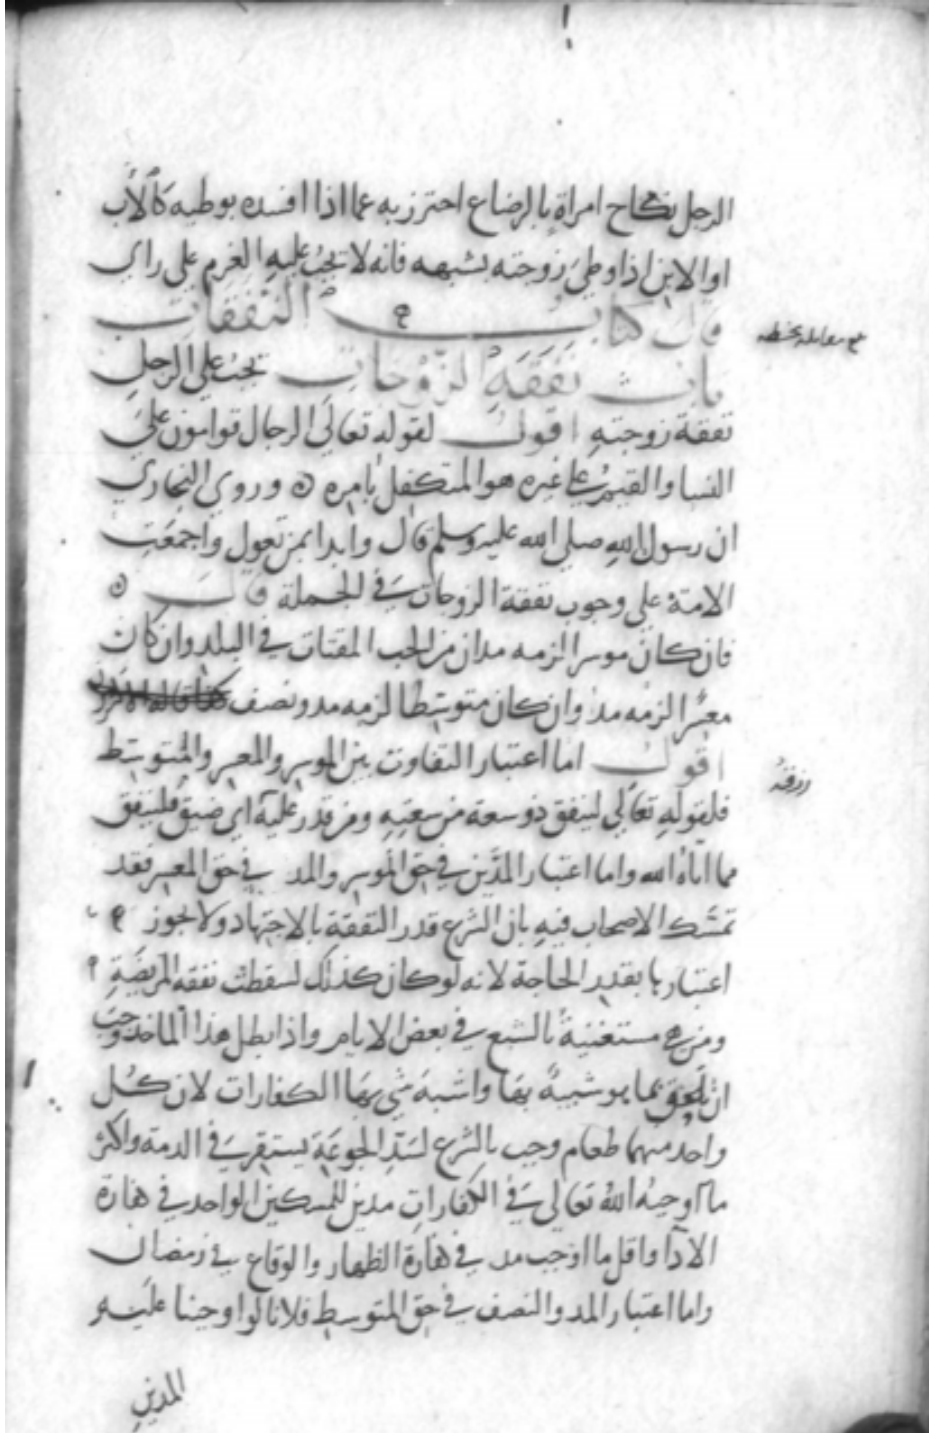 الرجل بنكاح امراة بالرضاع احترز به عما اذا افسده بوطيه كالاب
او الابن اذا وطي زوجته بشبهه فانه لا يجب عليه الغرم على راي
قال كتاب النفقات
باب نفقة الزوجات تجب على الرجل
نفقة زوجته اقول لقوله تعالى الرجال قوامون على
النسا والقيم على غيره هو المتكفل بامره وروي البخاري
ان رسول الله صلى الله عليه وسلم قال وابدا بمن تعول واجمعت
الامة على وجوب نفقة الزوجات في الجملة قال
فان كان موسرا لزمه مدان من الحب المقتات في البلد وان كان
معسرا لزمه مد وان كان متوسطا لزمه مد ونصف
اقول اما اعتبار التفاوت بين الموسر والمعسر والمتوسط
فلقوله تعالى لينفق ذو سعة من سعته ومن قدر عليه اي ضيق فلينفق
مما اتاه الله واما اعتبار المدين في حق الموسر والمد في حق المعسر فقد
تمسك الاصحاب فيه بان الشرع قدر النفقة بالاجتهاد ولا يجوز
اعتبارها بقدر الحاجة لانه لو كان كذلك لسقطت نفقة المريضة
ومن هي مستغنية بالشبع في بعض الايام واذا بطل هذا الماخذ وجب
ان تلحق بما هو شبيه بها واشبه شي بها الكفارات لان كل
واحد منهما طعام وجب بالشرع لسد الجوعة يستقر في الذمة واكثر
ما اوجبه الله تعالى في الكفارات مدين للمسكين الواحد في كفارة
الاذا واقل ما اوجب مد في كفارة الظهار والوقاع في رمضان
واما اعتبار المد والنصف في حق المتوسط فلانا لو اوجبنا عليه
المدين